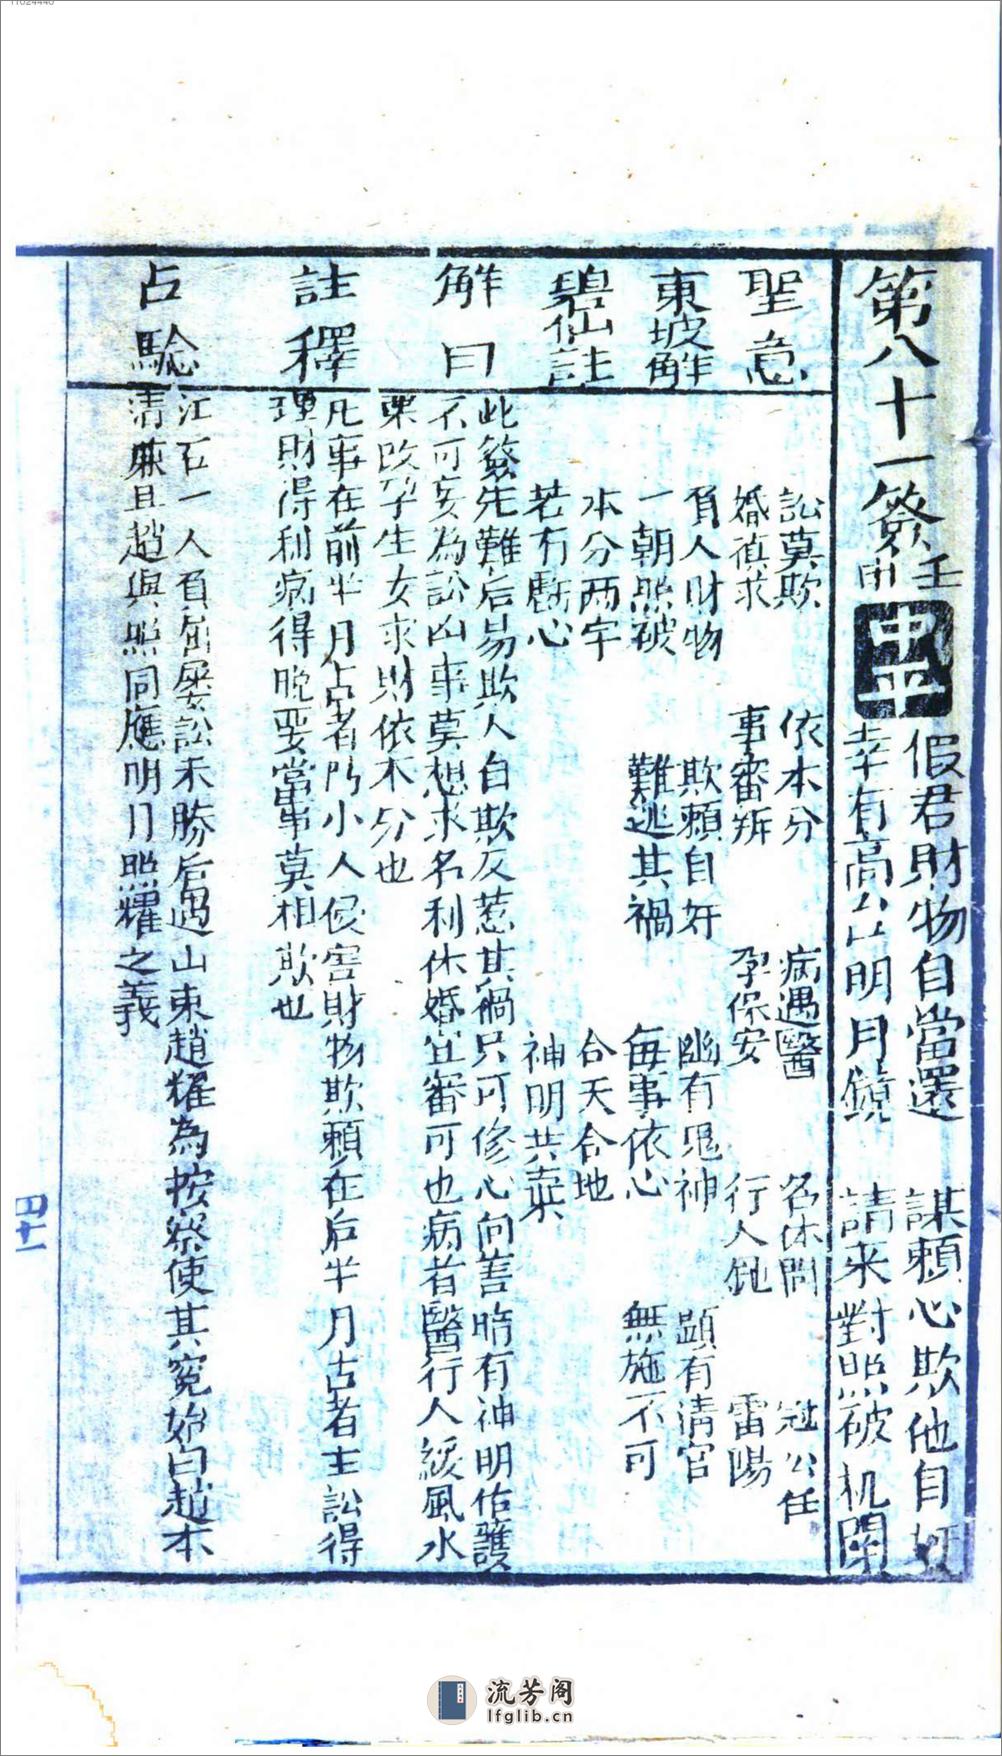 第八十一簽 壬甲 中平
假君財物自當還 謀賴心欺他自奸
幸有高公明月鏡 請來對照被机関
聖意
訟莫欺 依本分 病遇醫 名休問 冠公任
婚慎求 事審辨 孕保安 行人 雷陽
東坡解
負人財物 欺賴自奸 幽有鬼神 顕有清官
一朝照被 難逃其禍 每事依心 無施不可
碧仙註
本分兩字 合天合地
若有虧心 神明共棄
解曰
此簽先難后易欺人自欺反惹其禍只可修心向善暗有神明佑護
不可妄為訟凶事莫想求名利休婚宜審可也病者醫行人緩風水
要改孕生女求財依本分也
註釋
凡事在前半月占者門小人侵害財物欺賴在后半月占者主訟得
理財得利病得晚要當事莫相欺也
占驗
江右一人負屈屡訟未勝后遇山東趙耀為按察使其寃始白趙本
清亷且趙與照同應明月照耀之義
四十一
流芳阁
lfglib.cn